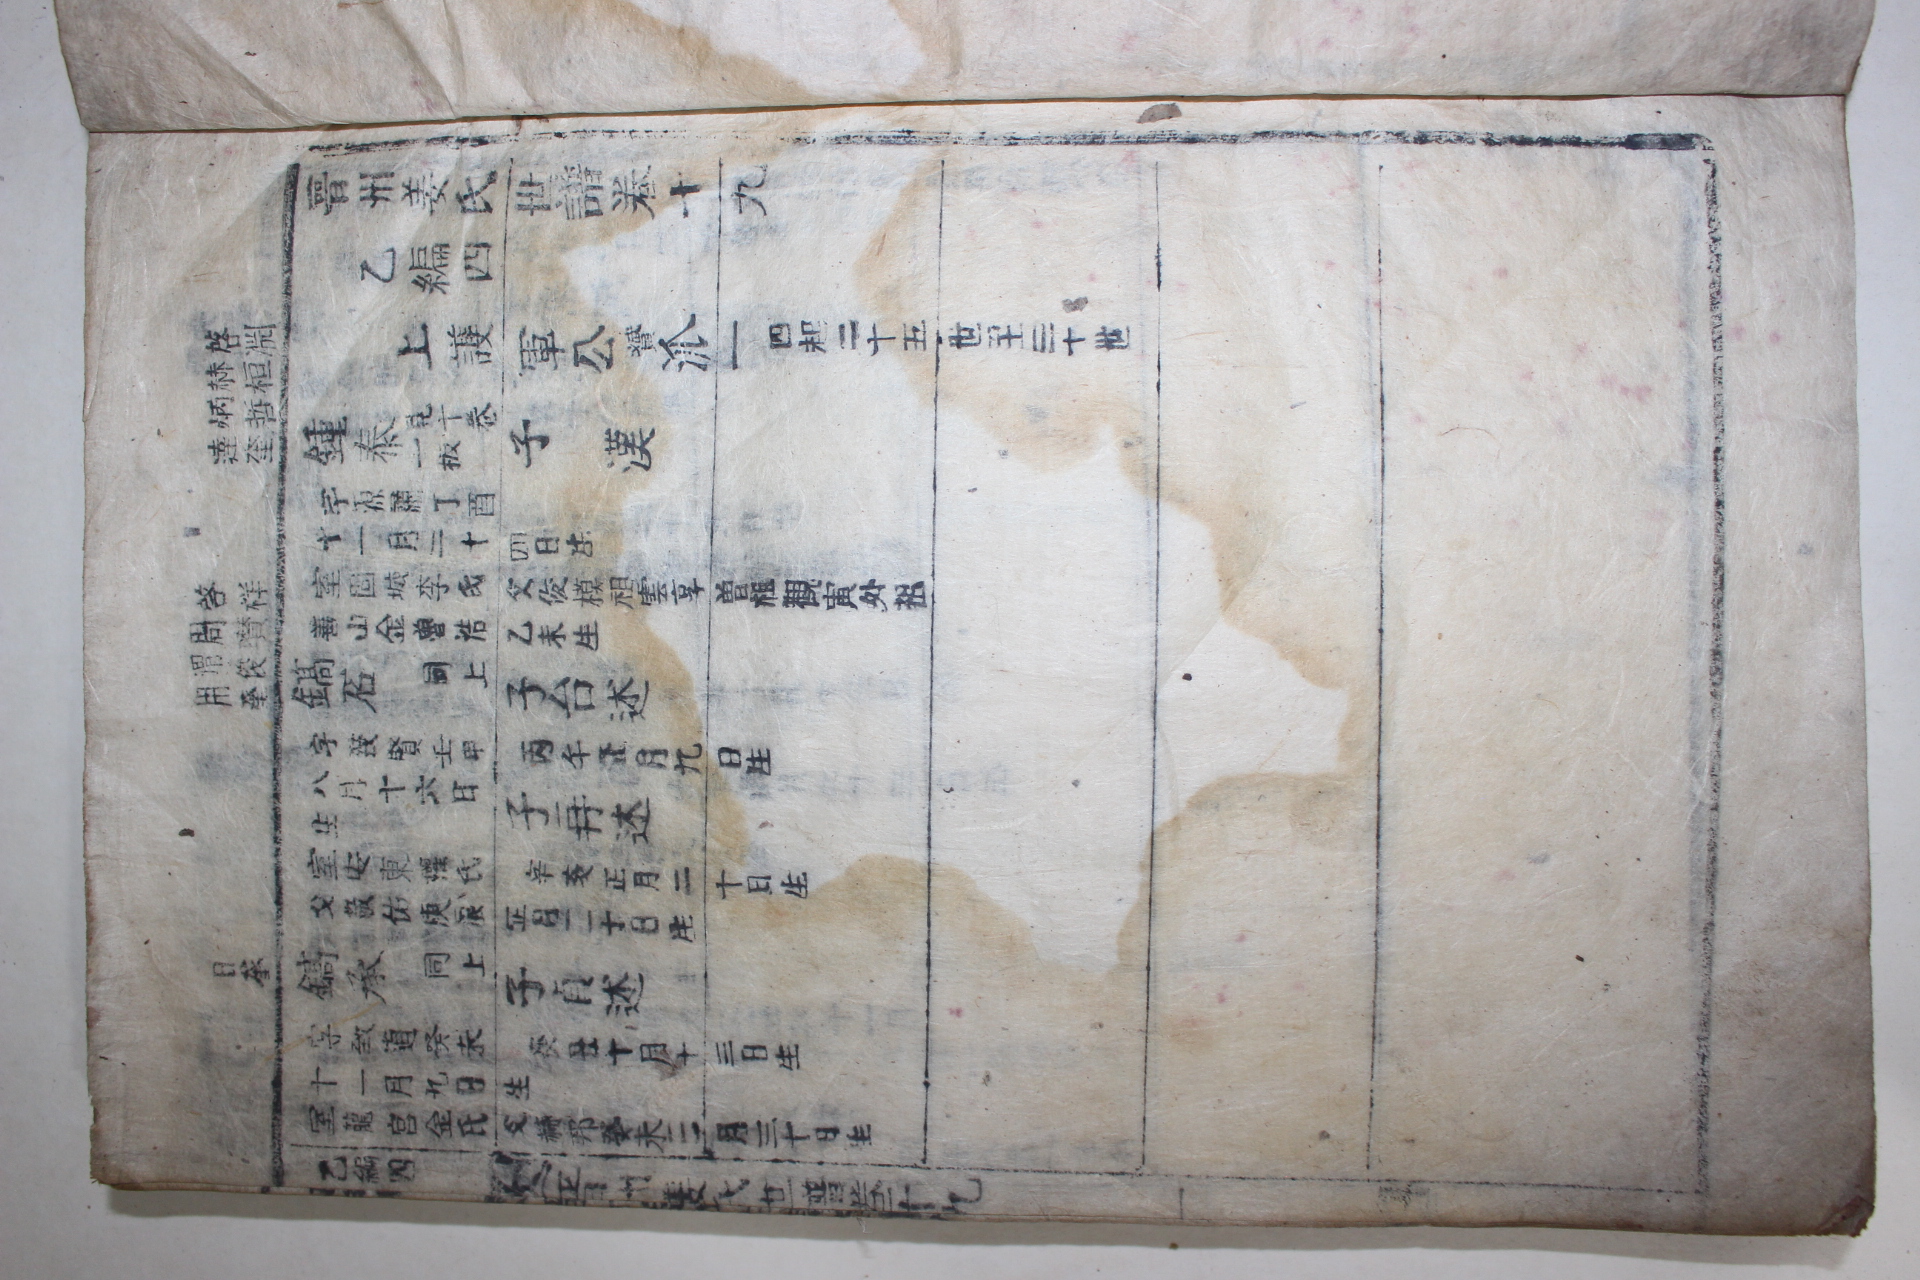 晉州姜氏世譜卷十九
乙編四
上護軍公贇派一 四起二十五世至三十世
啓淵
赫桓
炳哲
達奎
鍾泰 見十卷一板
子漢
字源 丁酉
十一月二十
四日生
啓祥
周贊
渭俊
用奎
室固城李氏
父俊模祖雲享曾祖觀寅外祖
善山金曾浩
乙未生
鎬石 同上
子台述
字 賢壬申
丙午正月九日生
八月十六日
生
子再述
室安東權氏
辛亥正月二十日生
父 佑庚辰
正月二十日生
日奎
鎬承 同上
子貞述
字致道癸未
癸丑十月十三日生
十一月九日
生
室龍宮金氏
父赫邦癸未二月三十日生
乙編四
晋州姜氏世譜卷十九
一